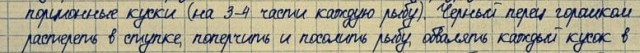 порционные куски (на 3-4 части каждую рыбу). Черный перец горошком
растереть в ступке, поперчить и посолить рыбу, обвалять каждый кусок в